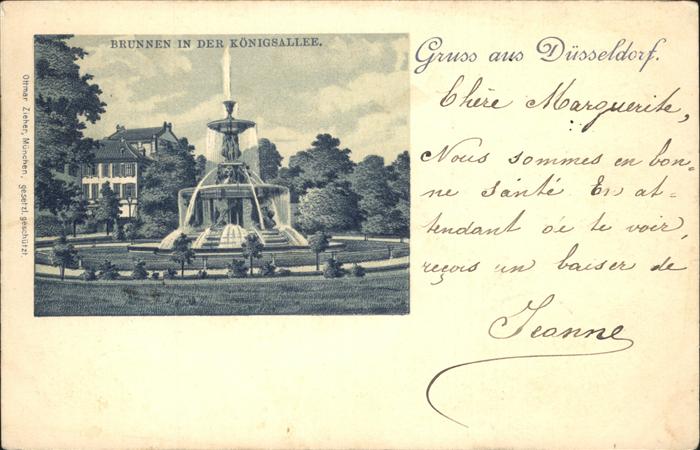 BRUNNEN IN DER KÖNIGSALLEE.
Ottmar Zieher, München, gesetzl. geschützt.
Gruss aus Düsseldorf.
Chère Marguerite,
Nous sommes en bon-
ne santé. En at-
tendant de te voir,
reçois un baiser de
Jeanne